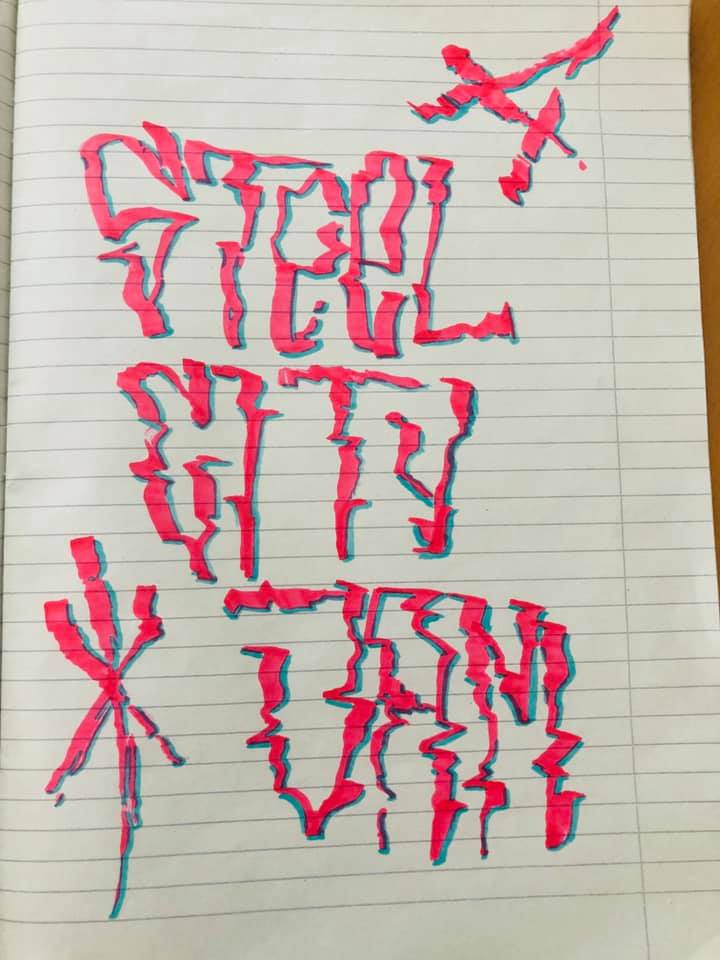 STEEL
CITY
JAM